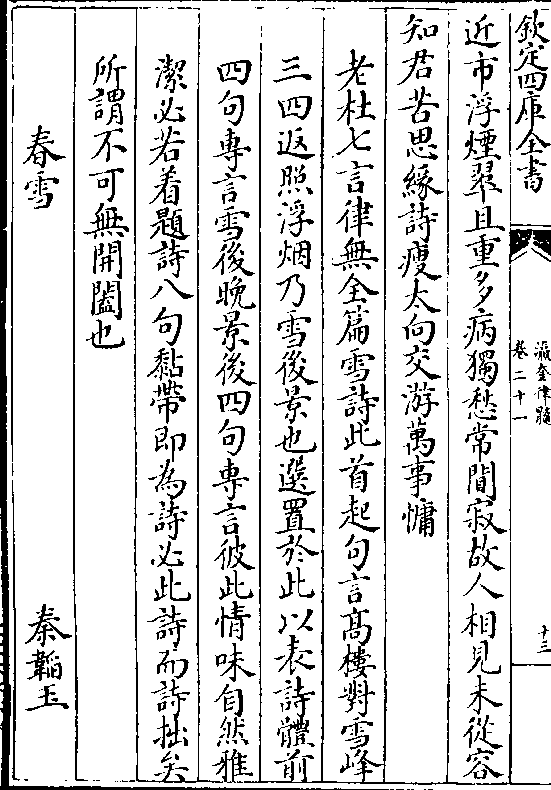 欽定四庫全書
瀛奎律髓
卷二十一
十三
近市浮煙翠且重多病獨愁常闃寂故人相見未從容
知君苦思緣詩瘦太向交游萬事慵
老杜七言律無全篇雪詩此首起句言高樓對雪峰
三四返照浮烟乃雪後景也選置於此以表詩體前
四句專言雪後晚景後四句專言彼此情味自然雅
潔必若着題詩八句黏帶即為詩必此詩而詩拙矣
所謂不可無開闔也
春雪 秦韜玉